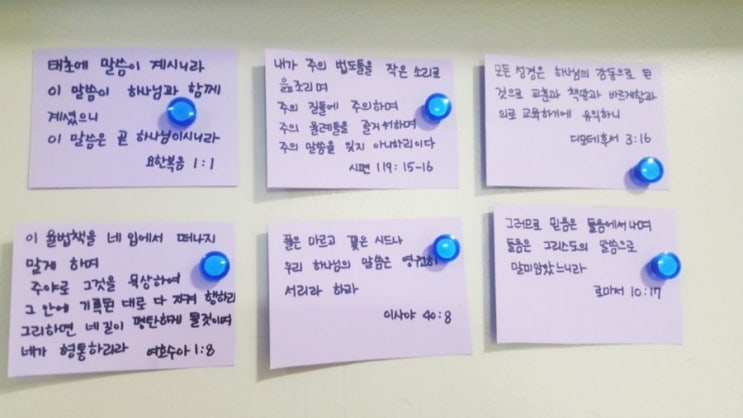 태초에 말씀이 계시니라
이 말씀이 하나님과 함께
계셨으니
이 말씀은 곧 하나님이시니라
요한복음 1:1
내가 주의 법도들을 작은 소리로
읊조리며
주의 길들에 주의하며
주의 율례들을 즐거워하며
주의 말씀을 잊지 아니하리이다
시편 119:15-16
모든 성경은 하나님의 감동으로 된
것으로 교훈과 책망과 바르게함과
의로 교육하기에 유익하니
디모데후서 3:16
이 율법책을 네 입에서 떠나지
말게 하며
주야로 그것을 묵상하여
그 안에 기록된 대로 다 지켜 행하라
그리하면 네 길이 평탄하게 될것이며
네가 형통하리라 여호수아 1:8
풀은 마르고 꽃은 시드나
우리 하나님의 말씀은 영원히
서리라 하라
이사야 40:8
그러므로 믿음은 들음에서 나며
들음은 그리스도의 말씀으로
말미암았느니라
로마서 10:17